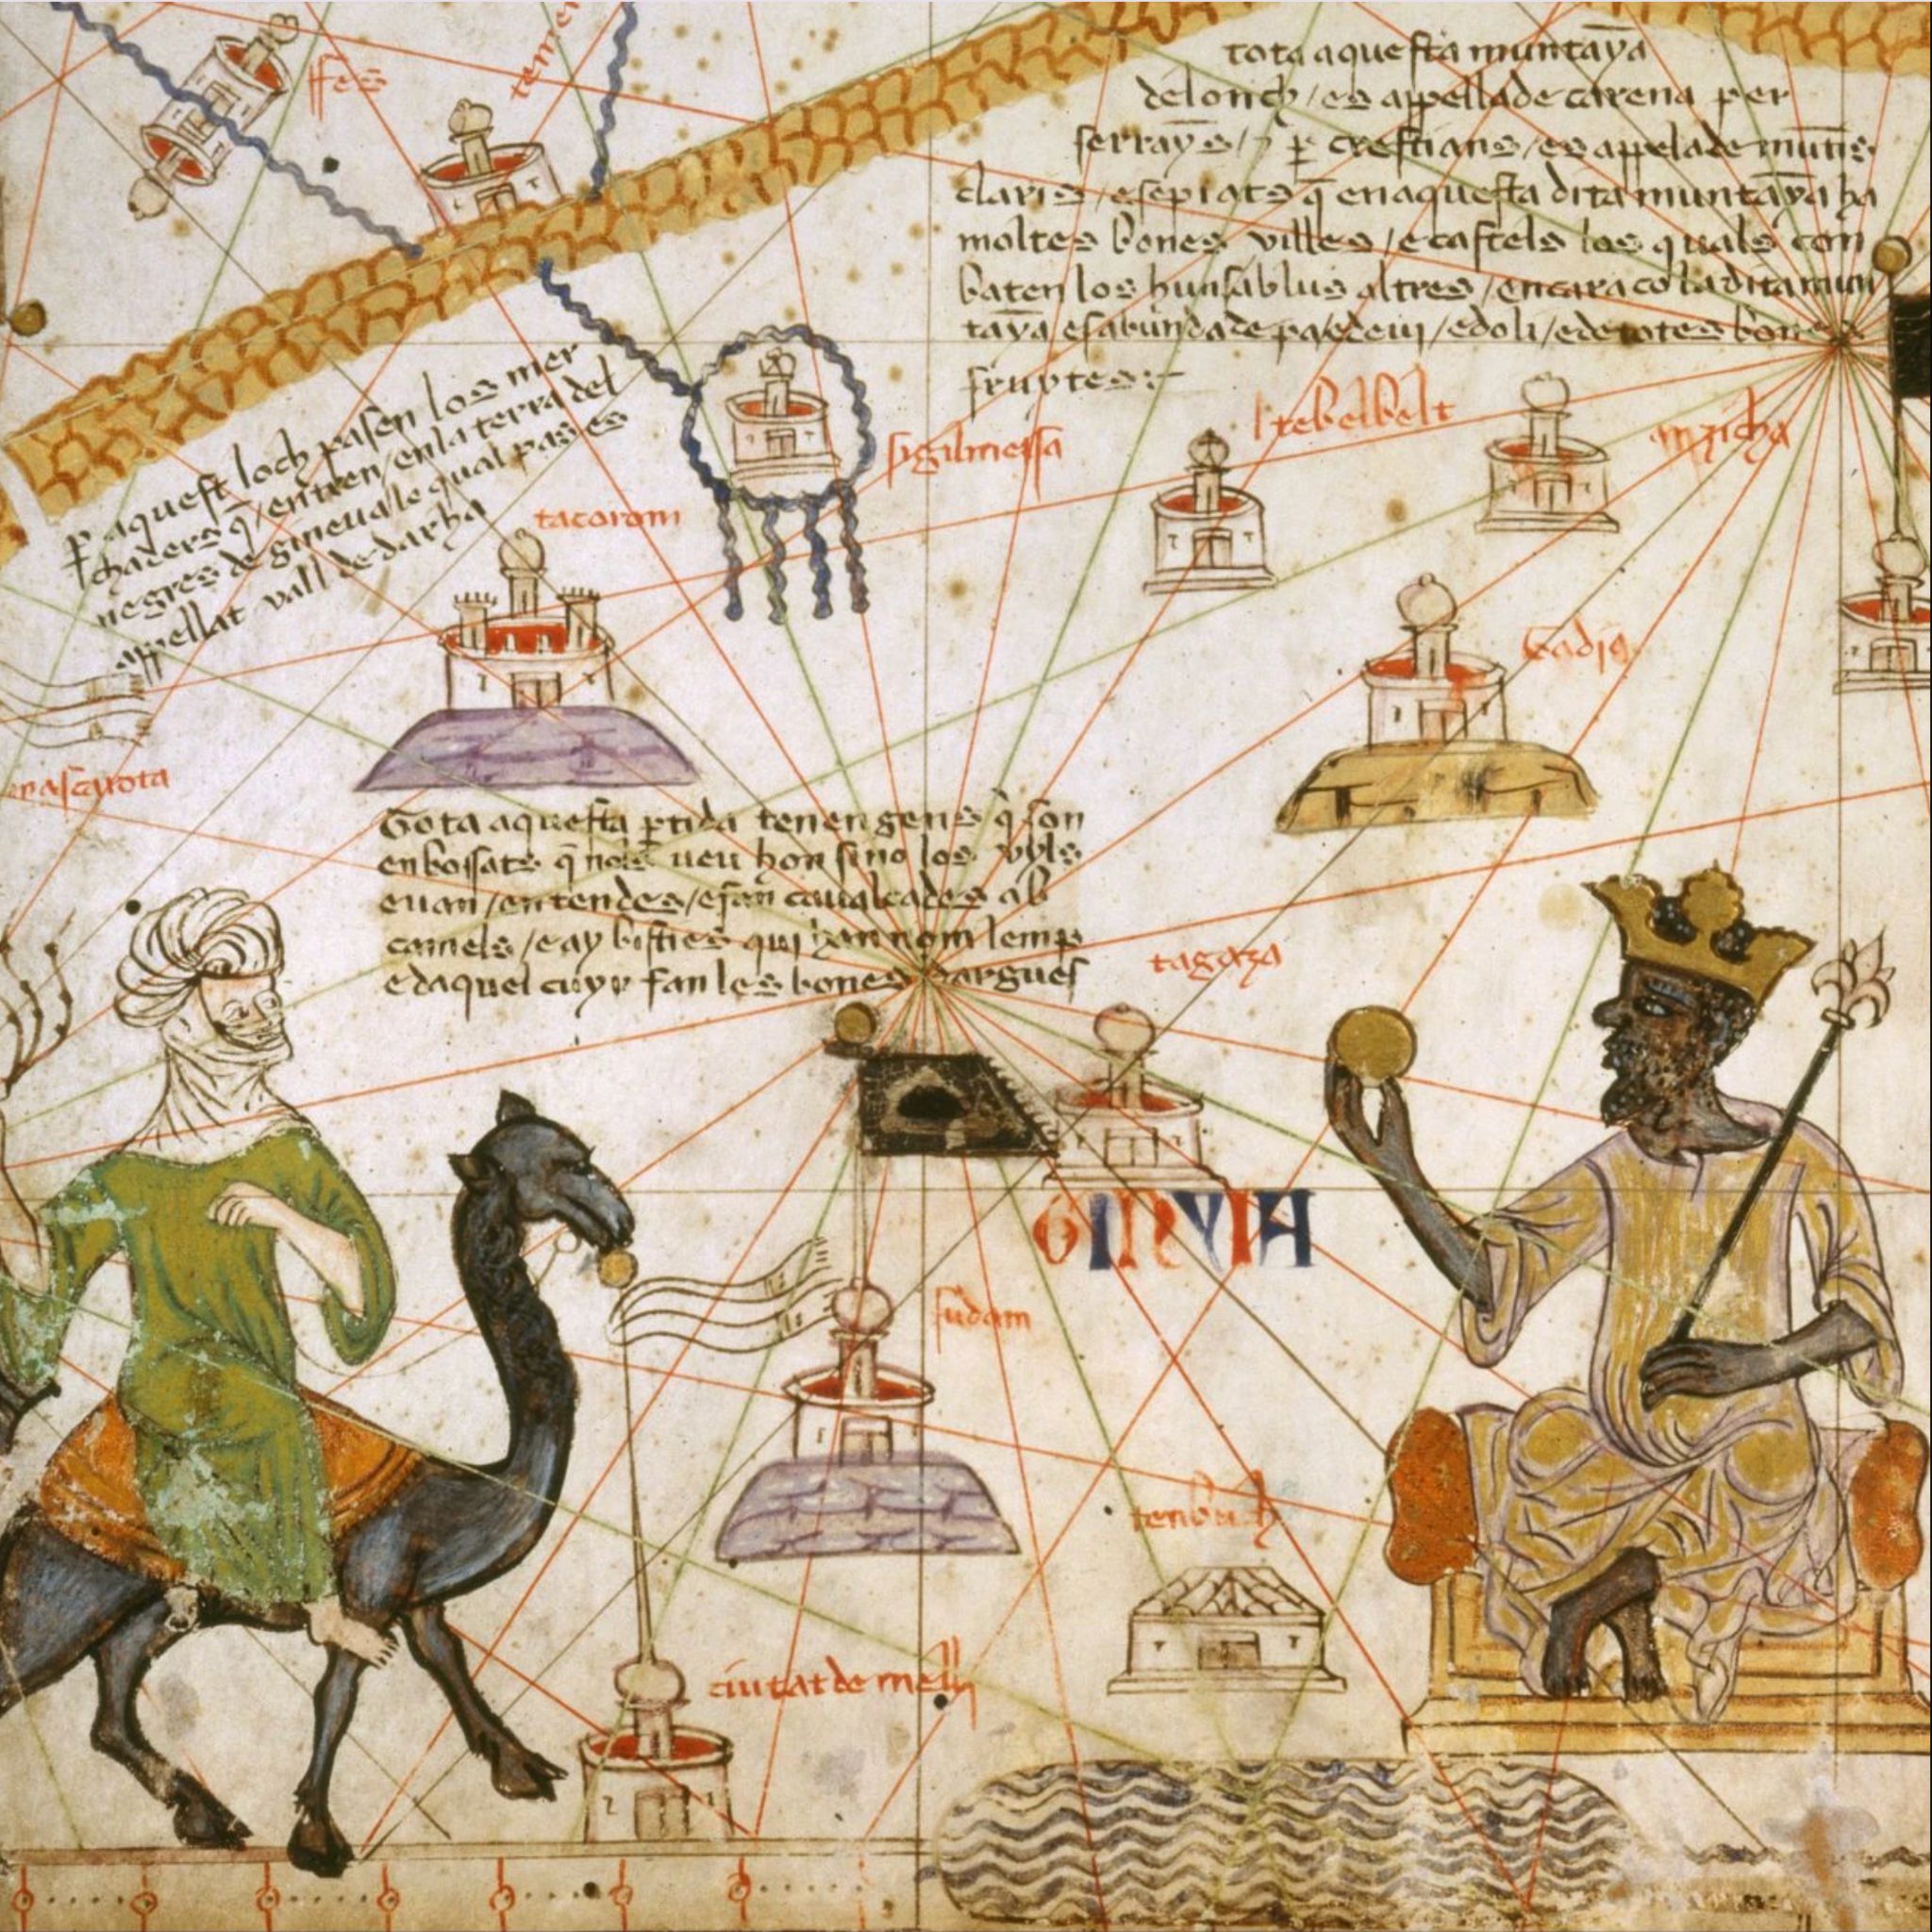 ffes
tota aquesta muntaya
de lonch / es appellade carena per
serrayns / 7 p crestians / es appelade muntis
claris / e sepiats q̄ en aquesta dita muntaya ha
moltes bones villes / e castels los quals con
baten los huns ab lus altres / encara co la dita mun
taya es abundade de pa / e de vij / e d oli / e de totes bones
fruytes :~
p aquest loch pasen los mer
chaders q̄ / entren / en la terra del
negres de gineua lo qual pas es
appellat vall de darha
sigilmessa
l tebelbelt
tacorom
Tota aquesta ptida tenen gens q̄ son
enbossats q̄ nols veu hon sino los uyls
e uan / en tendes / e fan caualcades ab
camels / e ay bisties qui han nom lemp
e daquel cuyr fan les bones dargues
tagaza
GINYIA
sudam
tenbuch
ciutat de melly